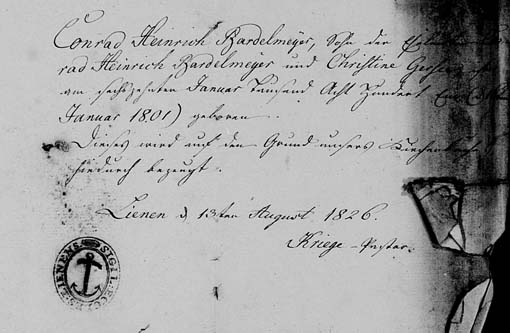 Conrad Heinrich Bardelmeyer, Sohn der
rad Heinrich Bardelmeyer und Christine
am sechszehnten Januar Tausend Acht Hundert
Januar 1801) geboren.
Dieses wird auf den Grund unsers
hiedurch bezeugt.
Lienen d 13ten August 1826.
Kriege - Pastor.
LIENENS